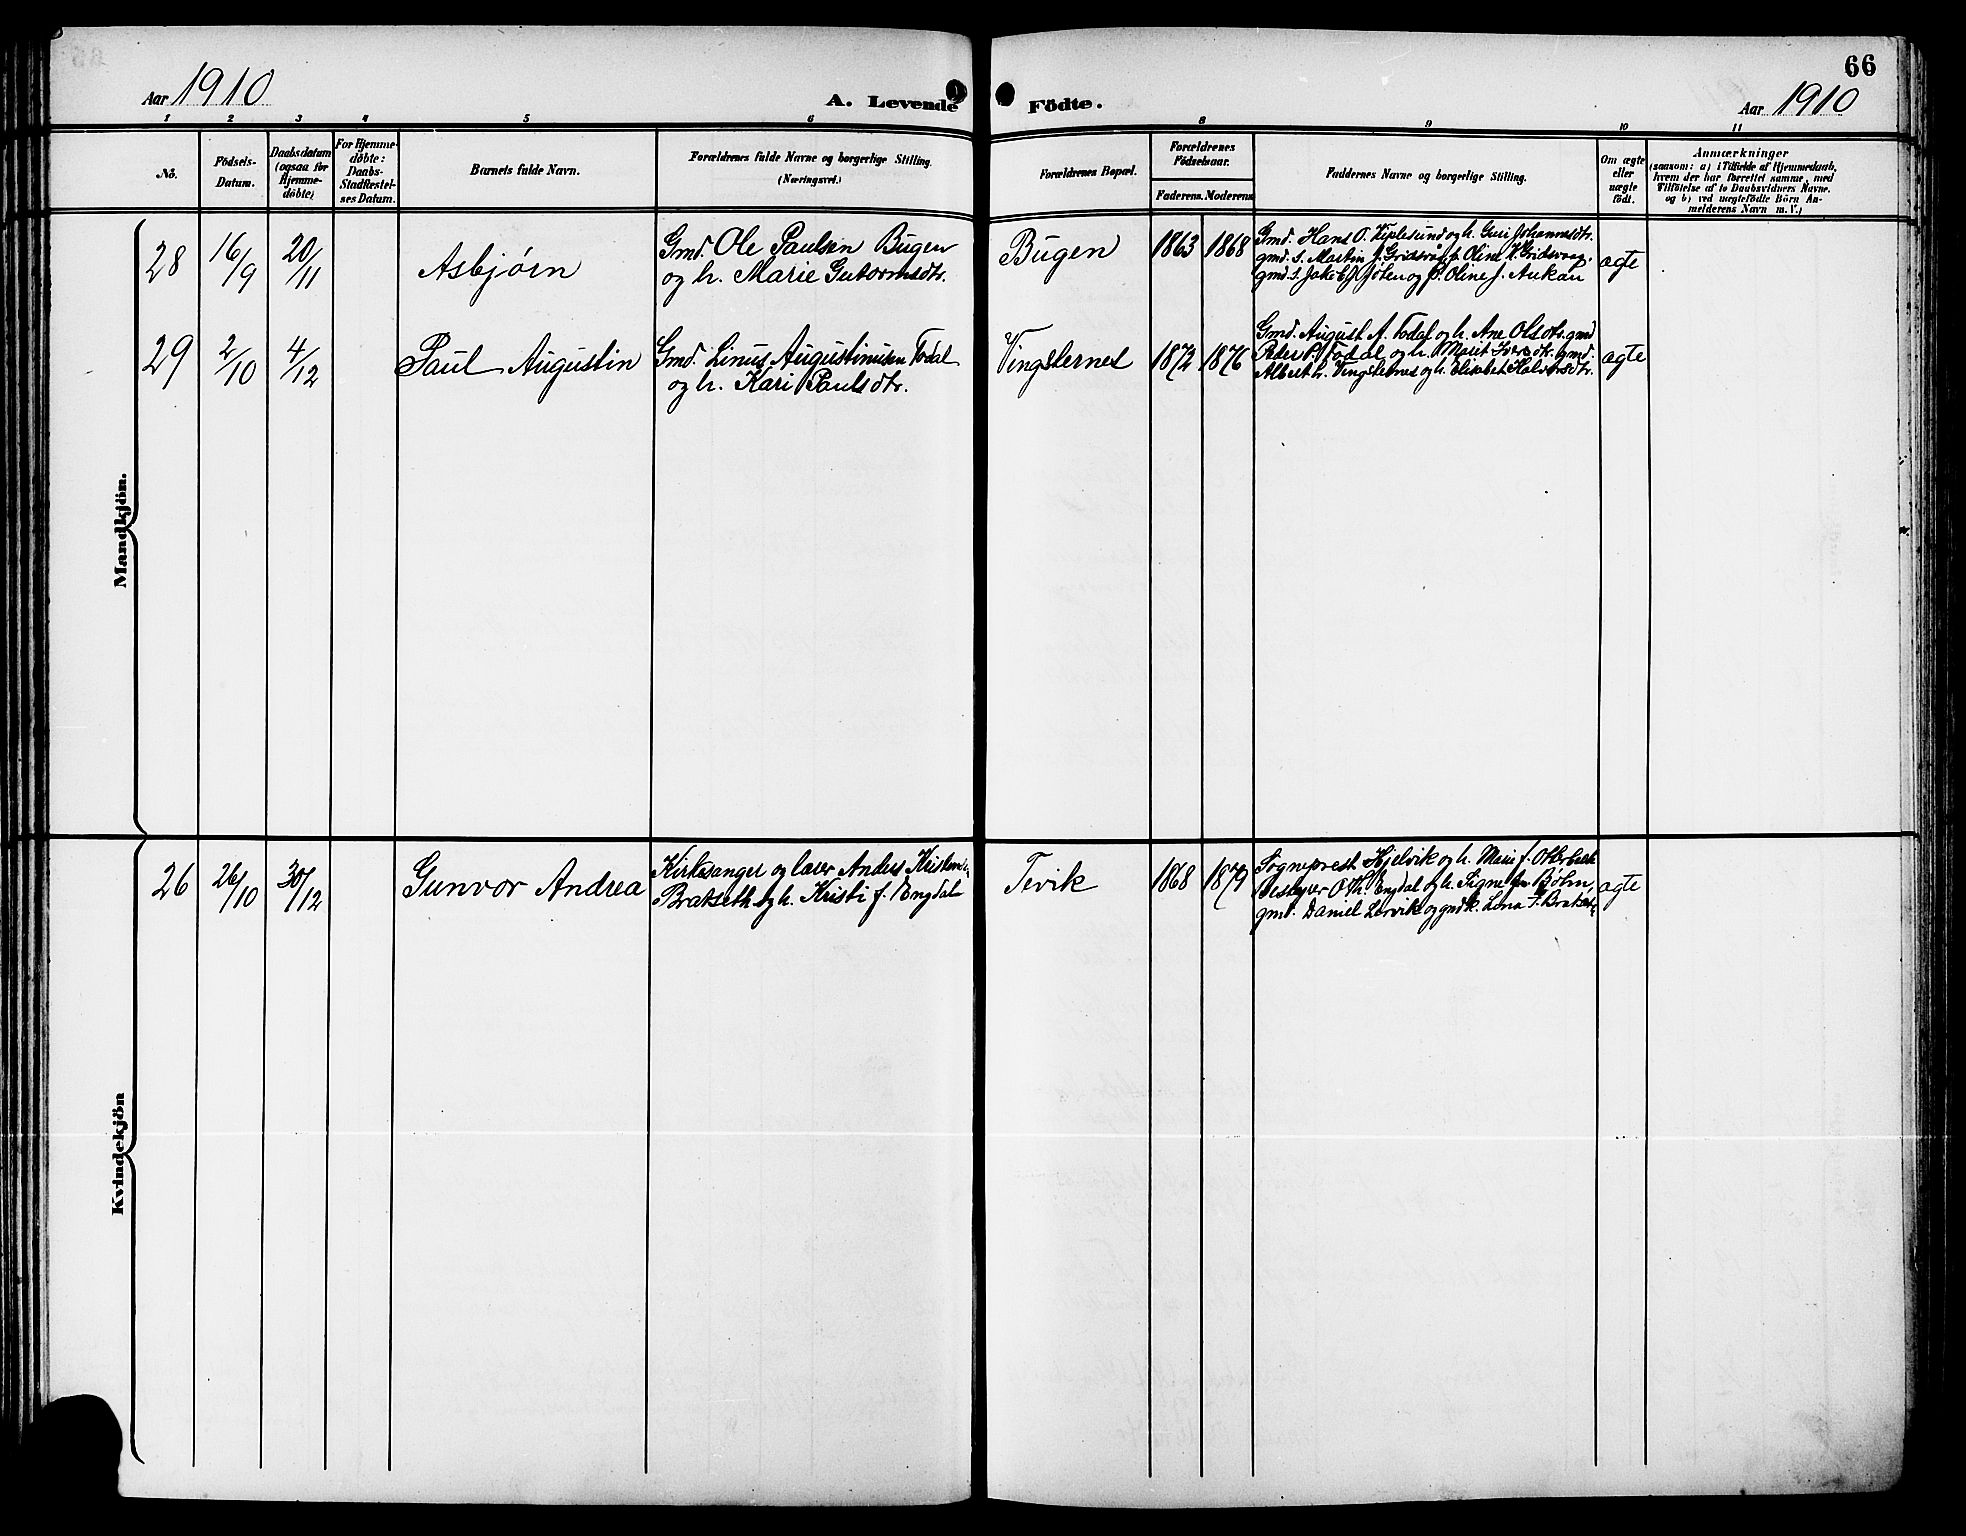 66
Aar 1910
A. Levende Födte.
Aar 1910
1 2 3 4 5 6 8 9 10 11
No.
Födsels-
Datum.
Daabsdatum
(ogsaa for
Hjemme-
döbte)
For Hjemme-
döbte:
Daabs-
Stadfæstel-
ses Datum.
Barnets fulde Navn.
Forældrenes fulde Navne og borgerlige Stilling.
(Næringsvei.)
Forældrenes Bopæl.
Forældrenes
Födselsaar.
Faderens. Moderens.
Faddernes Navne og borgerlige Stilling.
Om ægte
eller
uægte
födt.
Anmærkninger
(saasom: a) i Tilfælde af Hjemmedaab,
hvem der har forrettet samme, med
Tilföielse af to Daabsvidners Navne,
og b) ved uægtefödte Börn An-
melderens Navn m. V.)
Mandkjön.
28 16/9 20/11 Asbjørn
Gmd. Ole Paulsen Bugen
og h. Marie Guttormsdtr.
Bugen 1863 1868
Gmd. Hans O. Kiplesund og h. Guri Johannesdtr.
gmd. s. Martin J. Gridsvåg, p. Oline K. Gridsvåg,
gmd. s. Jakob J. og p. Oline J. Aukan
ægte
29 2/10 4/12 Paul Augustin
Gmd. Linus Augustinusen Todal
og h. Kari Paulsdtr.
Vingsternes 1872 1876
Gmd. August A. Todal og h. Ane Olsdtr. gmd
Peter P. Todal og h. Marit Iversdtr. gmd.
Albert h. Vingsternes og h. Elisabet Halvorsdtr.
ægte
Kvindekjön
26 26/10 30/12 Gunvor Andrea
Kirkesanger og lærer Anders Kristen-
Brakseth og h. Kristi f. Engdal
Tevik 1868 1879
Sogneprest Hjelvik og h. f. Otterbeck
Bestyrer O. Th. Engdal og h. Signe f. Bøhn,
gmd. Daniel Lervik og gmdk. Lena F. Brakset
ægte